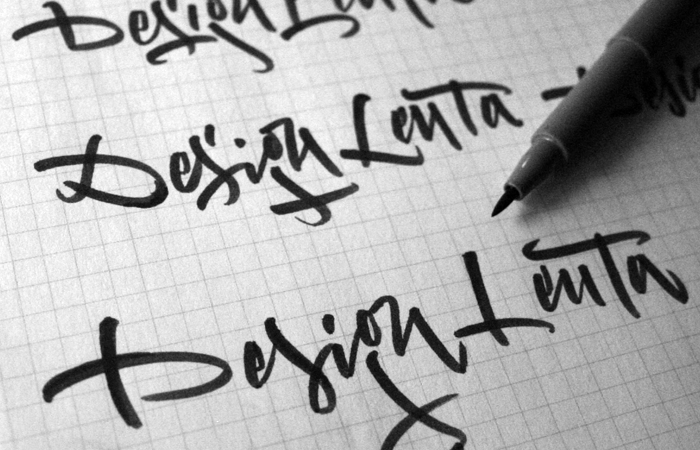 Design Lenta
Design Lenta Desig
Design Lenta